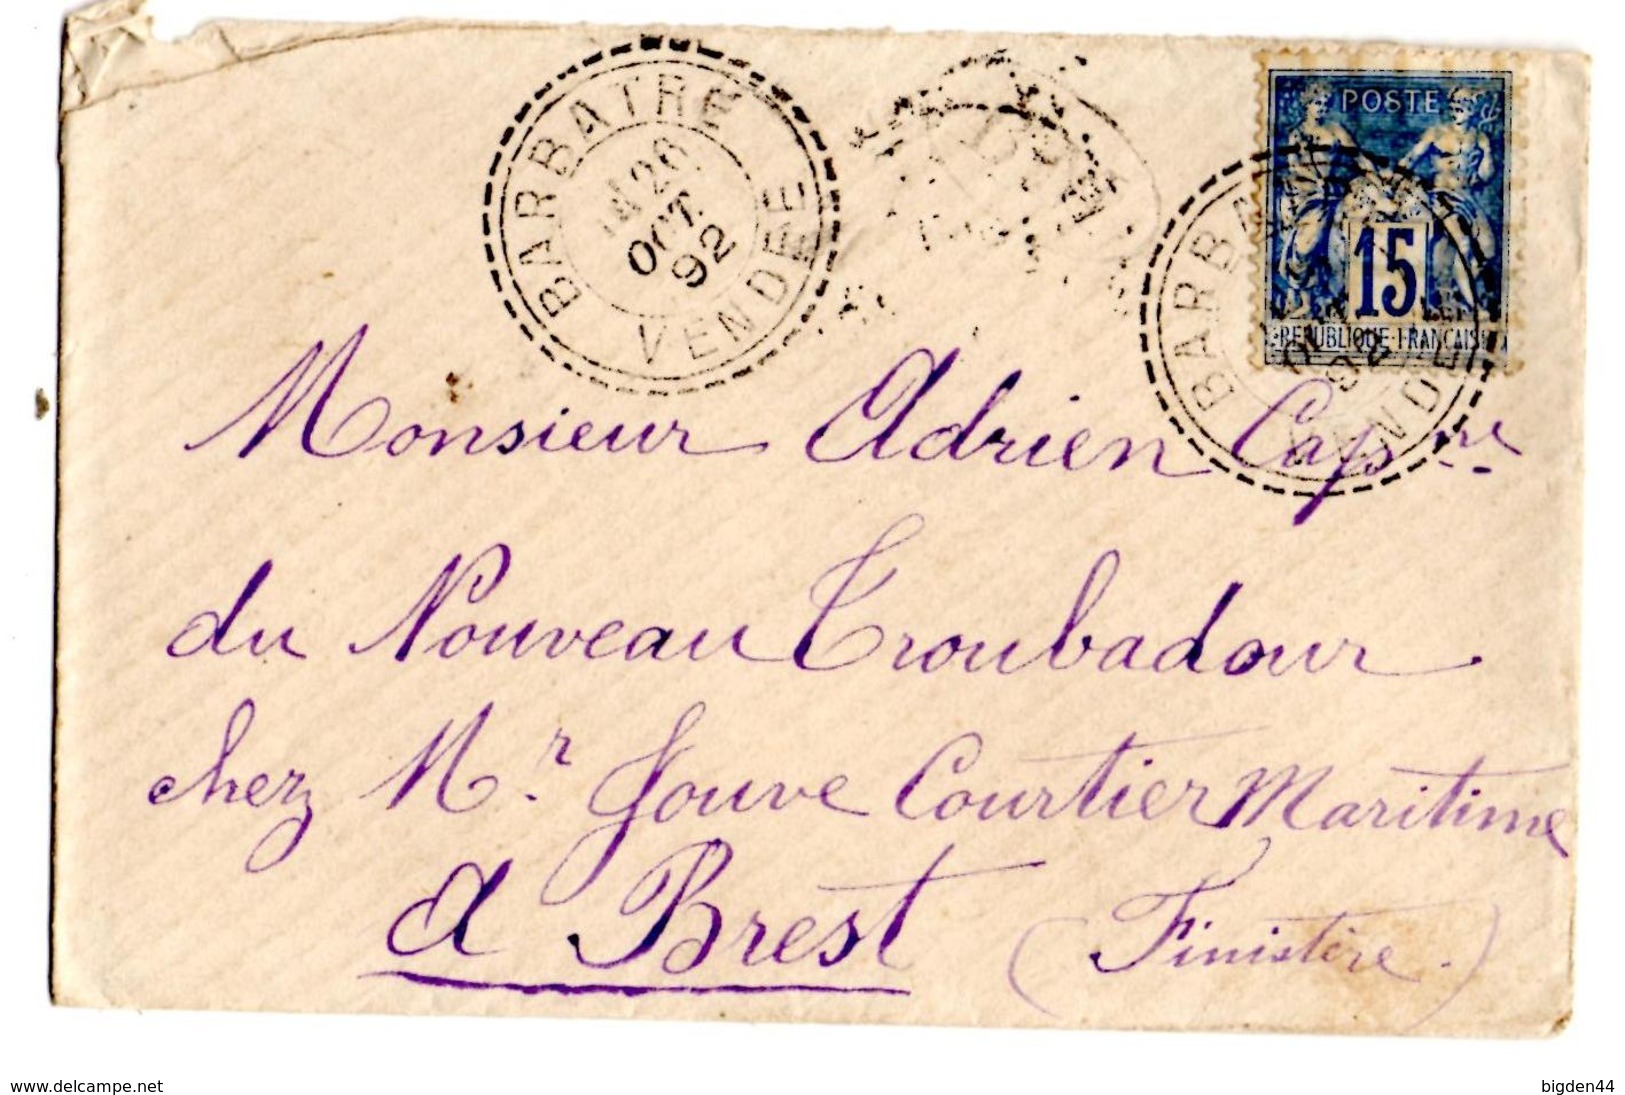 BARBATRE
26
OCT.
92
VENDÉE
POSTE
15
REPUBLIQUE FRANCAISE
BARBATRE
92
VENDÉE
Monsieur Adrien Capne
du Nouveau Troubadour
chez Mr. Jouve Courtier Maritime
à Brest (Finistère.)
www.delcampe.net
bigden44